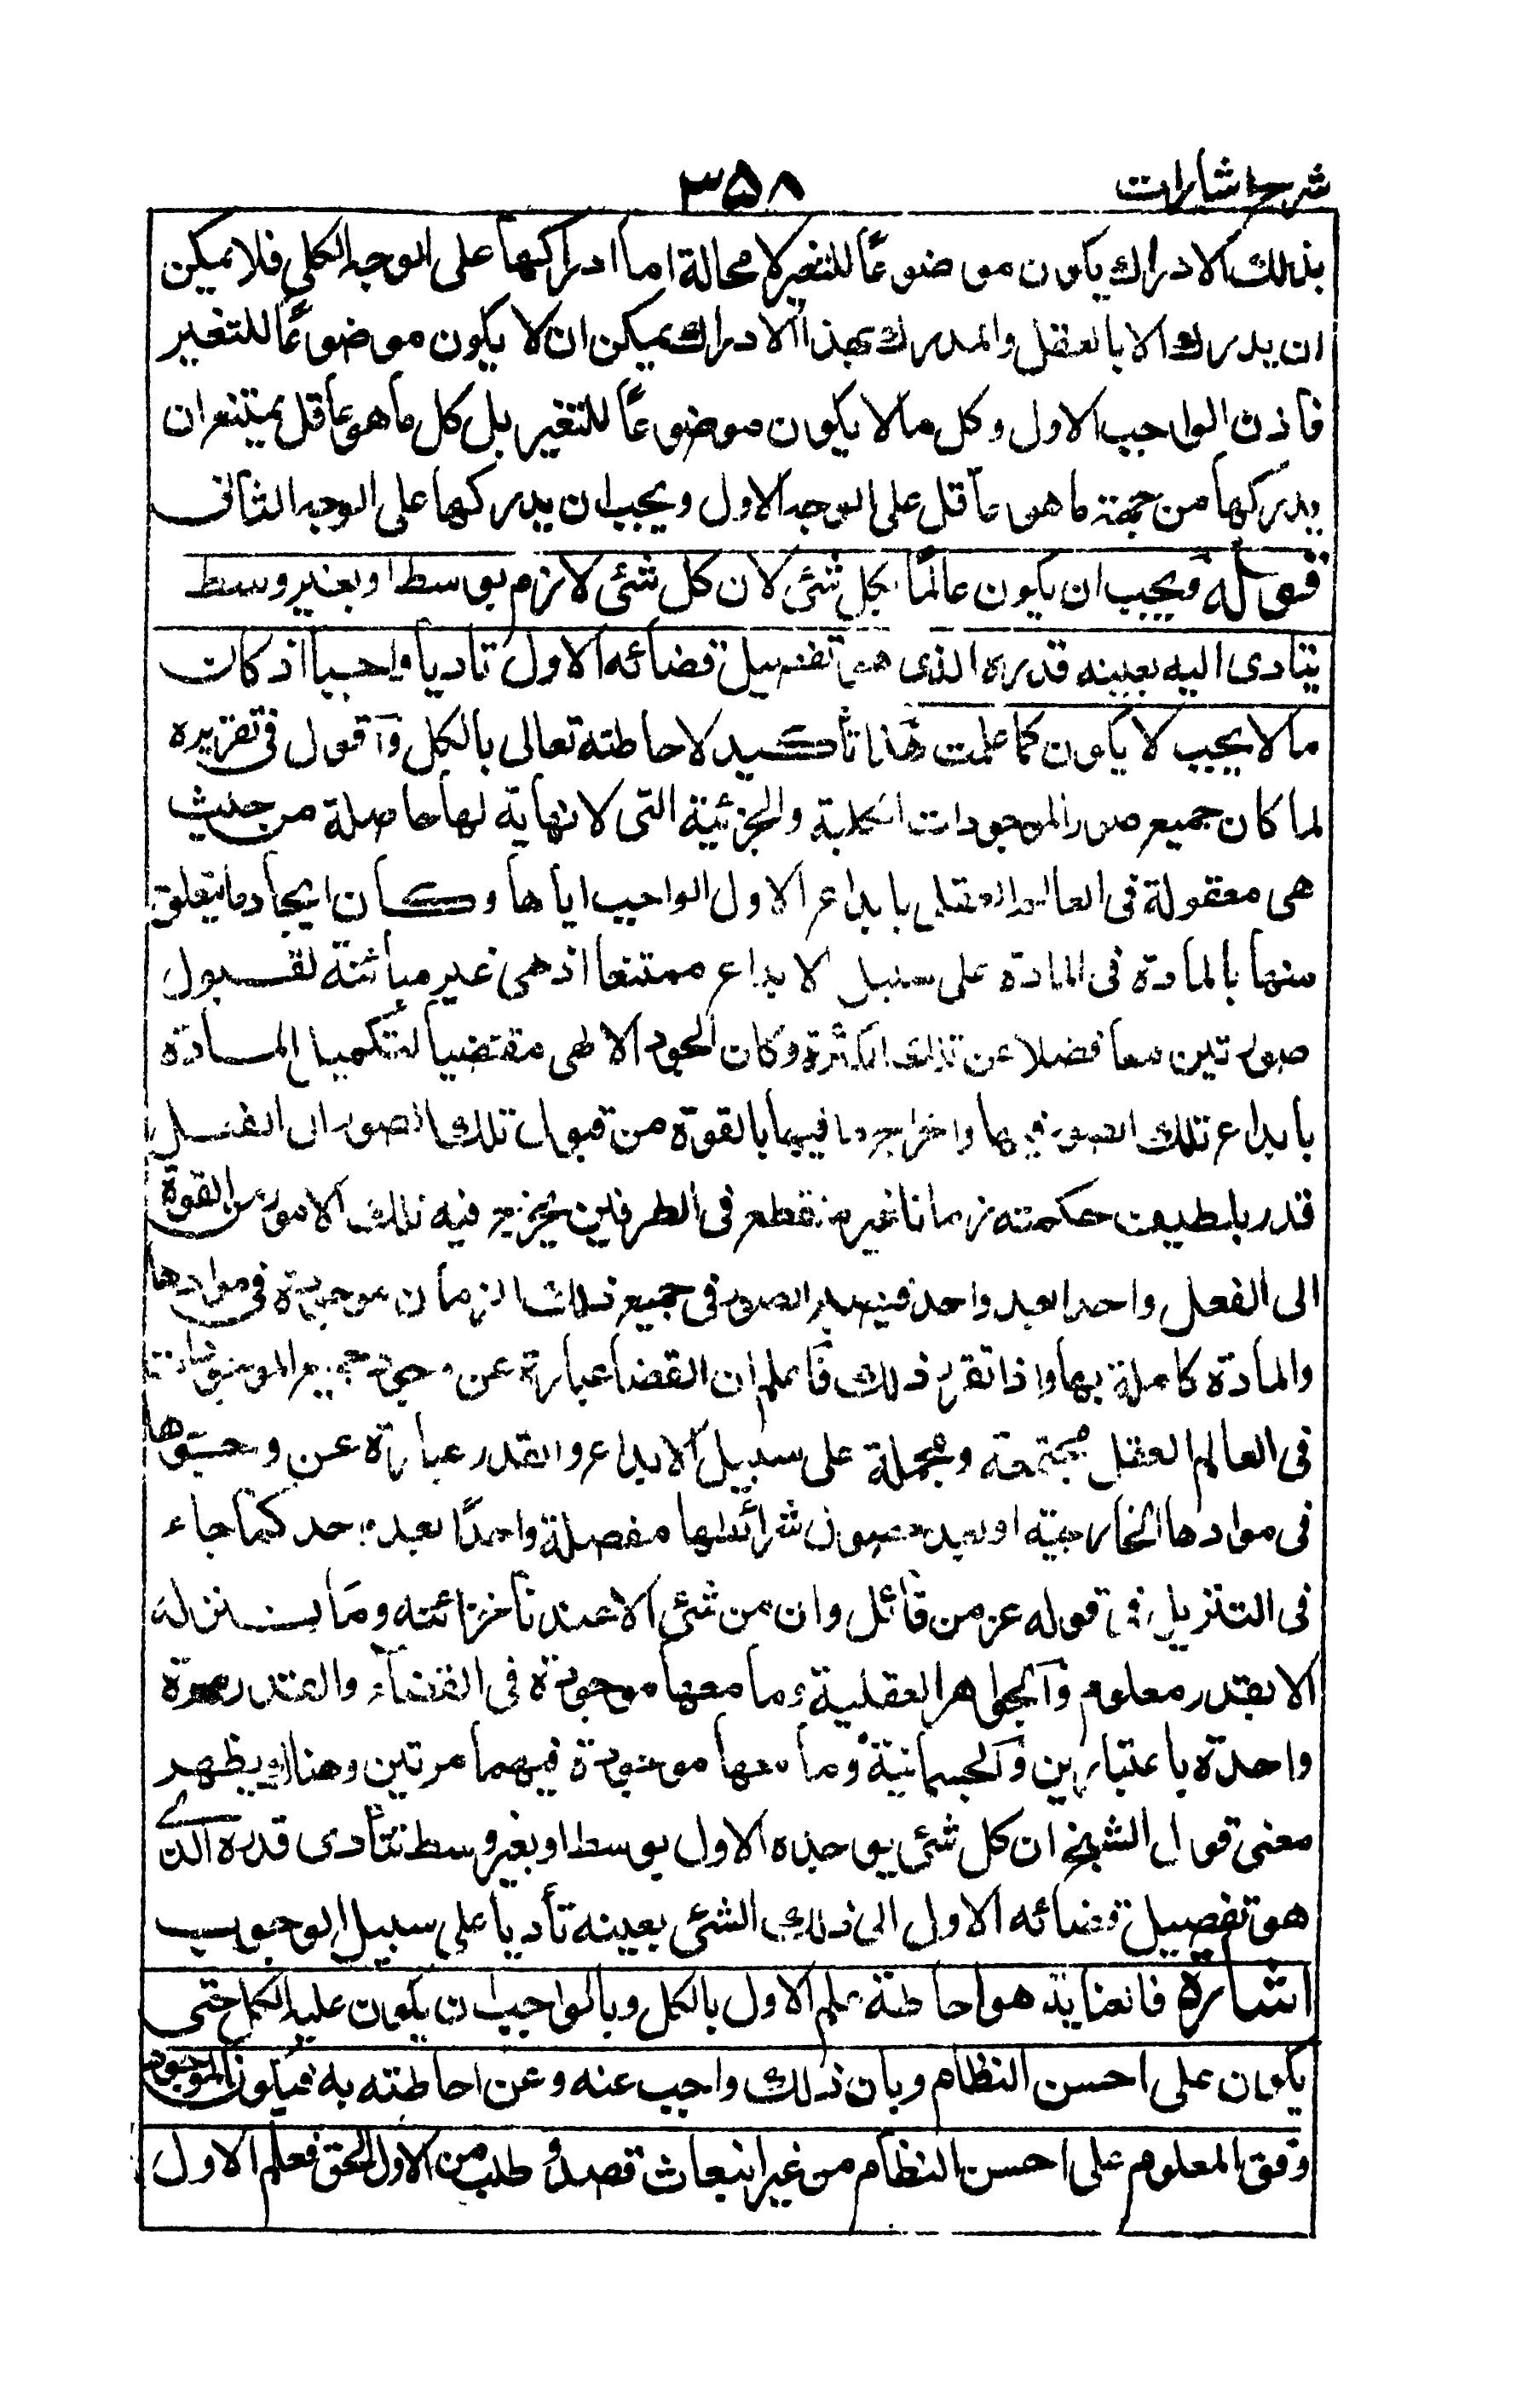 شرح اشارات
٣٥٨
بذلك الادراك يكون موضوعًا للتغير لا محالة اما ادراكها على الوجه الكلي فلا يمكن
ان يدرك الا بالعقل والمدرك بهذا الادراك يمكن ان لا يكون موضوعًا للتغير
فاذن الواجب الاول وكل ما لا يكون موضوعًا للتغير بل كل ما هو عاقل يمتنع ان
يدركها من جهة ما هو عاقل على الوجه الاول ويجب ان يدركها على الوجه الثانى
قوله ويجب ان يكون عالمًا بكل شئ لان كل شئ لازم بوسط او بغير وسط
يتادى اليه بعينه قدره الذى هو تفصيل قضائه الاول تاديا واجبا اذ كان
ما لا يجب لا يكون كما علمت هذا تأكيد لاحاطته تعالى بالكل وآقول فى تقريره
لما كان جميع صور الموجودات الكلية والجزئية التى لا نهاية لها حاصلة من حيث
هى معقولة فى العالم العقلى بابداع الاول الواجب اياها وكان ايجاد ما يتعلق
منها بالمادة فى المادة على سبيل الابداع ممتنعا اذ هى غير لقبول
صورتين معا فضلا عن تلك الكثرة وكان الجود الالهى مقتضيا لتكميل المادة
بابداع تلك الصور فيها واخراج ما فيها بالقوة من قبول تلك الصور الى الفعل
قدر بلطيف حكمته زمانا غير منقطع فى الطرفين يخرج فيه تلك الامور من القوة
الى الفعل واحدا بعد واحد فيصير الصور فى جميع ذلك الزمان موجودة فى موادها
والمادة كاملة بها واذا تقرر ذلك فاعلم ان القضا عبارة عن وجود جميع الموجودات
فى العالم العقلى مجتمعة ومجملة على سبيل الابداع والقدر عبارة عن وجودها
فى موادها الخارجية او بعد حصول شرائطها مفصلة واحدًا بعد واحد كما جاء
فى التنزيل فى قوله عز من قائل وان من شئ الا عندنا خزائنه وما ننزله
الا بقدر معلوم والجواهر العقلية وما معها موجودة فى القضاء والقدر مرة
واحدة باعتبارين والجسمانية وما معها موجودة فيهما مرتين وهناك يظهر
معنى قول الشيخ ان كل شئ يوجده الاول بوسط او بغير وسط تتأدى قدره الذى
هو تفصيل قضائه الاول الى ذلك الشئ بعينه تأديا على سبيل الوجوب
اشارة فالعناية هو احاطة علم الاول بالكل وبالواجب ان يكون عليه الكل حتى
يكون على احسن النظام وبان ذلك واجب عنه وعن احاطته به فيكون الموجود
وفق المعلوم على احسن النظام من غير انبعاث قصد وطلب من الاول الحق فعلم الاول